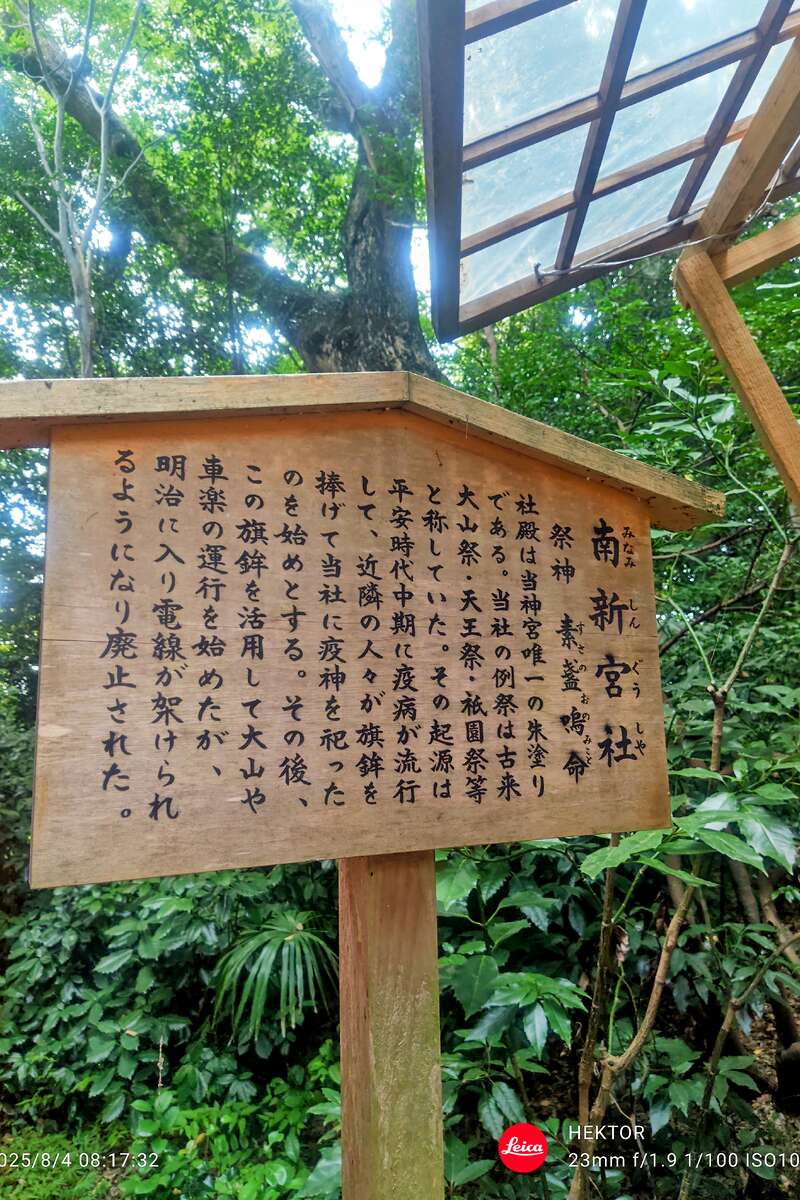 南新宮社
みなみ しん ぐう しや
祭神 素盞嗚命
すさの おの みこと
社殿は当神宮唯一の朱塗り
である。当社の例祭は古来
大山祭・天王祭・祇園祭等
と称していた。その起源は
平安時代中期に疫病が流行
して、近隣の人々が旗鉾を
捧げて当社に疫神を祀った
のを始めとする。その後、
この旗鉾を活用して大山や
車楽の運行を始めたが、
明治に入り電線が架けられ
るようになり廃止された。
025/8/4 08:17:32
Leica
HEKTOR
23mm f/1.9 1/100 ISO10